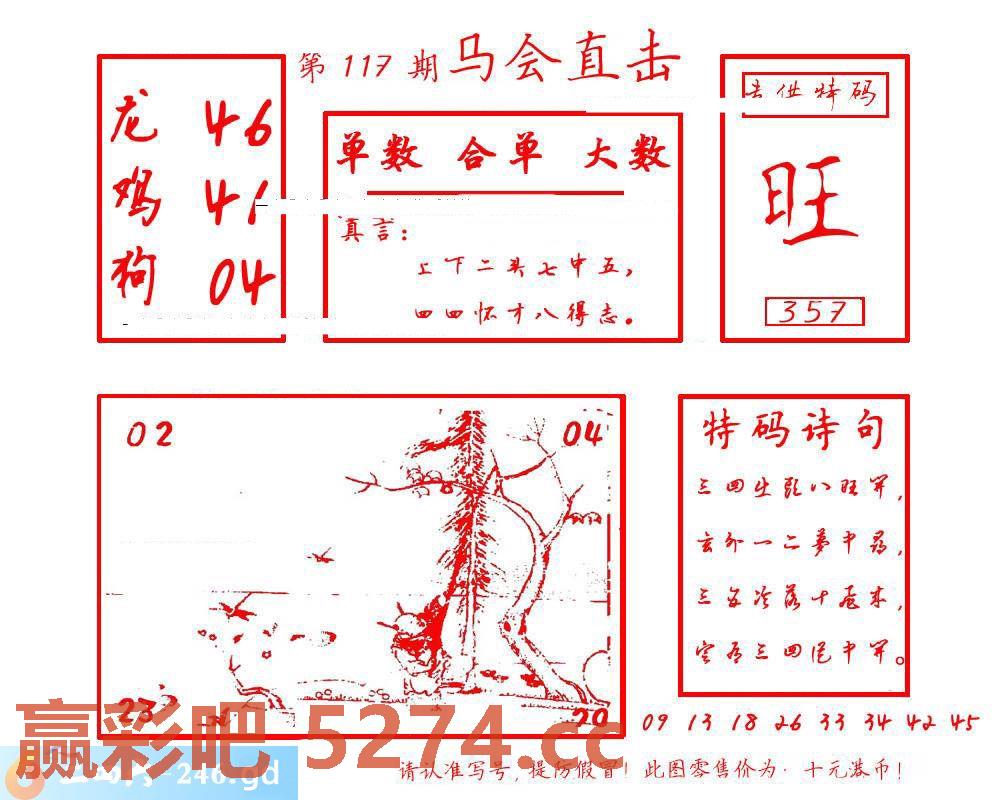 第 117 期 马会直击
龙 46
鸡 41
狗 04
单数 合单 大数
真言：
上下二头七中五，
四四怀才八得志。
特码
旺
357
02
04
23
20
特码诗句
三四生 八旺开，
玄外一二梦中寻，
三 冷落十 来，
三四 中开。
09 13 18 26 33 34 42 45
赢彩吧 5274.cc
-246.gd
请认准写号，提防假冒！此图零售价为·十元港币！